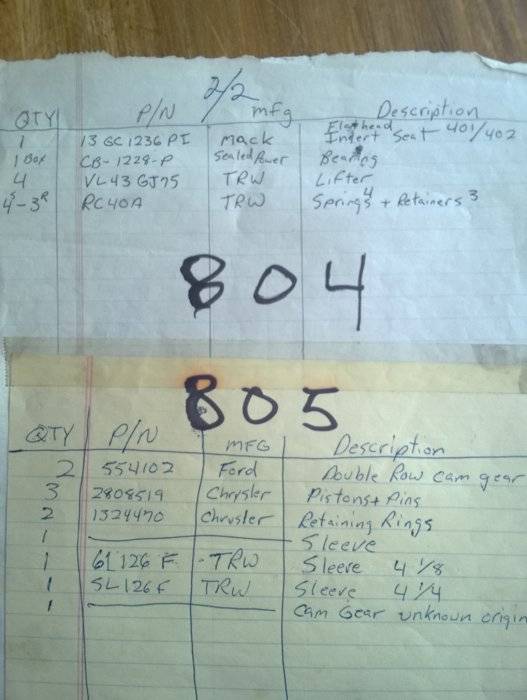 2/2
QTY P/N mfg Description
1 13 GC 1236 PI Mack Flathead Insert Seat 401/402
1 Box CB-1228-P Sealed Power Bearing
4 VL43 GJ75 TRW Lifter
4S-3R RC40A TRW Springs 4 + Retainers 3
804
805
QTY P/N MFG Description
2 554102 Ford Double Row cam gear
3 2808519 Chrysler Pistons + Pins
2 1324470 Chrysler Retaining Rings
1 Sleeve
1 61126 F - TRW Sleeve 4 1/8
1 SL126F TRW Sleeve 4 1/4
1 Cam Gear unknown origin